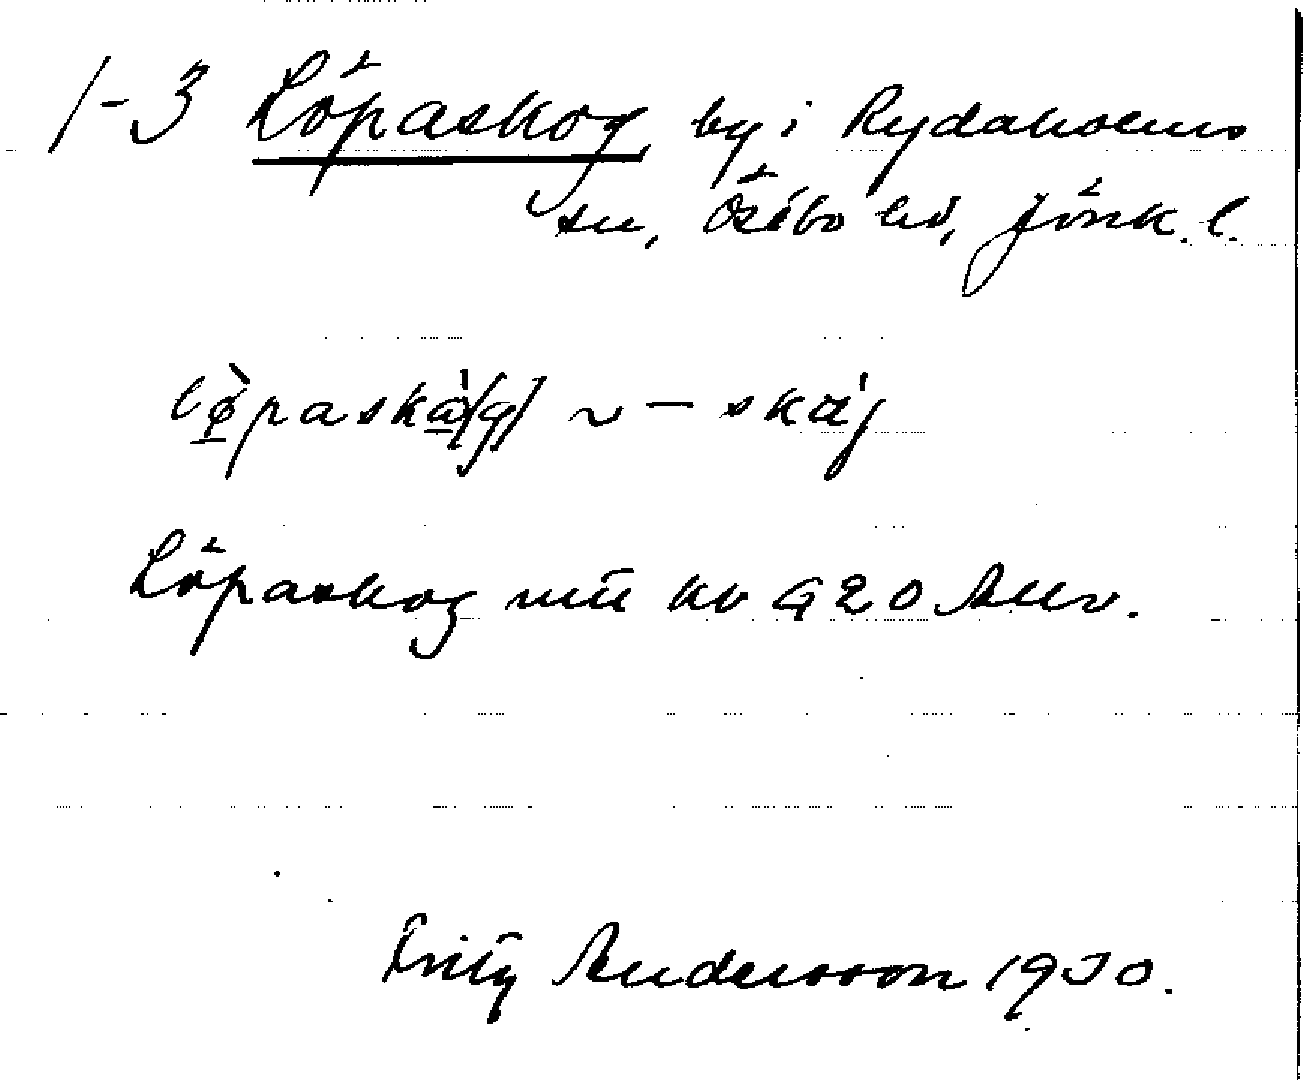 1-3 Löpaskog, by i Rydaholms
sn, Östbo hd, Jönk. l.
lø̀paskå̀(g) ~ – skáj
Löpaskog utt kv 920 Allv.
Fritz Andersson 1930.